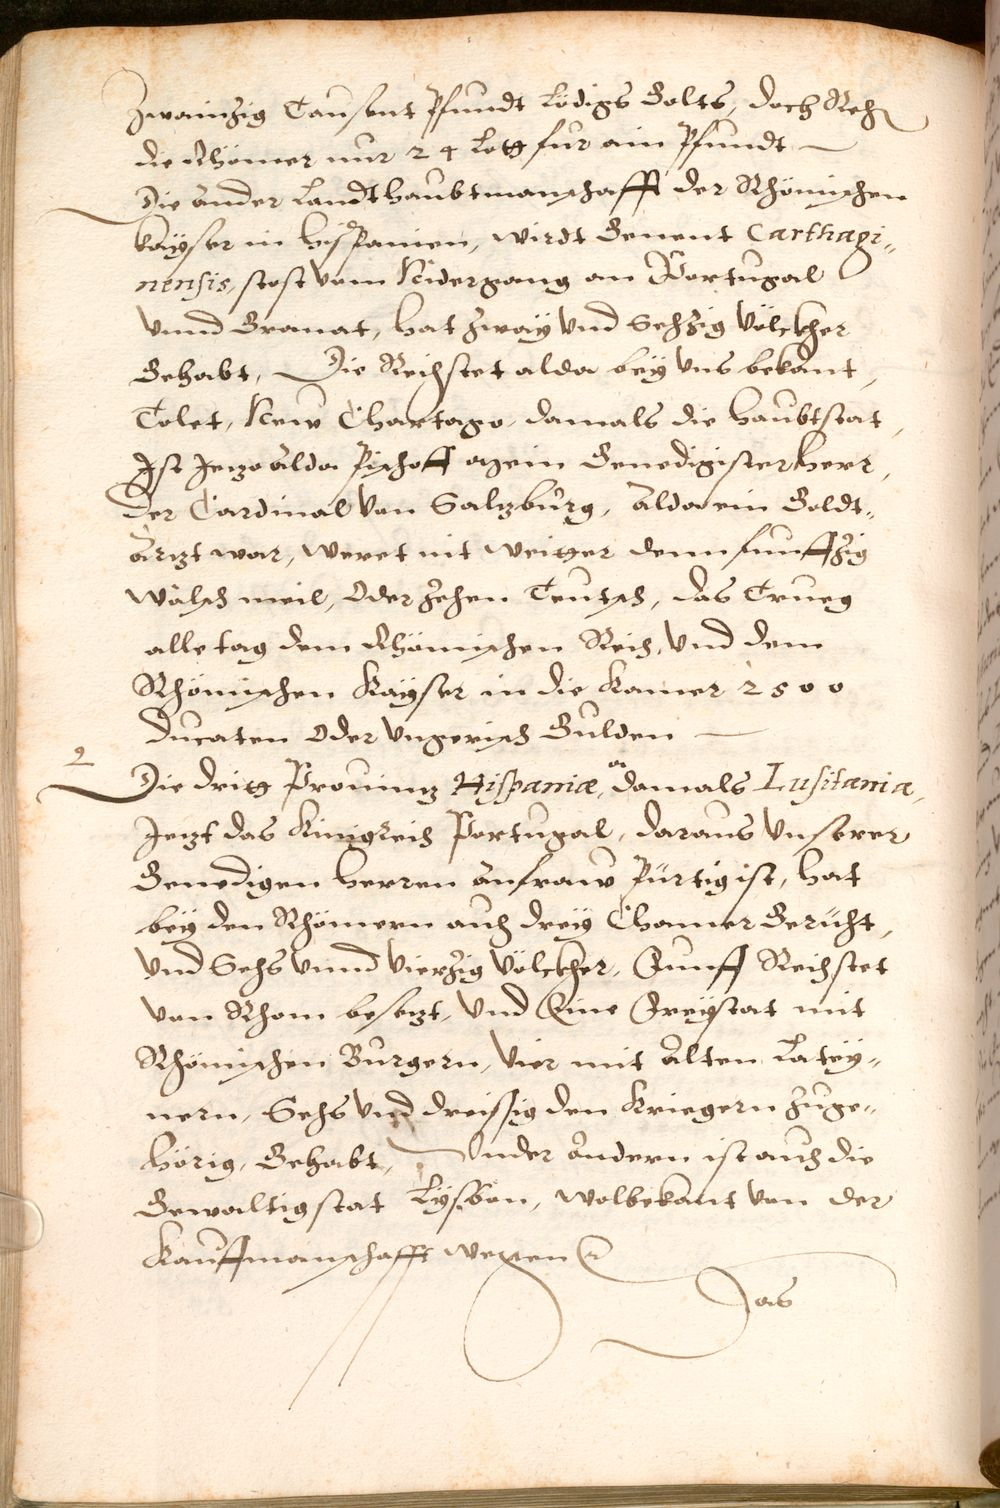 Zwainzig Tausent Pfundt Lödigs Golts, doch Reh
die Rhömer nur 24 Lott fur ain Pfundt —
Die ander Landthaubtmanschafft der Rhömischen
kayser in hispanien, wirdt Genent Carthagi„
nensis, stost vom Nidergang an Portugal
Vnnd Granat, hat zway Vnd Sechzig Völckher
Gehabt, Die Reichstet alda bey Vns bekant,
Tolet, New Chartago, damals die haubtstat,
Ist Jezo alda Pischoff Genedigister herr,
der Cardinal von Salzburg, alda ein Goldt„
ärtzt war, weret nit weitter denn funffzig
Wälsch meil, Oder zehen Teutsch, das Trueg
alle tag dem Rhömischen Reich, Vnd dem
Rhömischen Kayser in die Kamer 2500
Ducaten Oder Vngerisch Gulden —
Die dritt Prouintz Hispaniæ, damals Lusitania,
Jetzt das Kinigreich Portugal, daraus Vnserer
Genedigen herren anfraw Pürtig ist, hat
bey den Rhömern auch drey Chamer Gericht,
Vnd Sechs Vnnd Vierzig Völckher, Funff Reichstet
von Rhom besetzt, Vnd Eine Freystat mit
Rhömischen Burgern, Vier mit alten Latey„
nern, Sechs Vnd dreissig den Kriegern zuge„
hörig, Gehabt, Vnder andern ist auch die
Gewaltig stat Lysbon, wolbekant von der
Kauffmanschafft wegen
Das